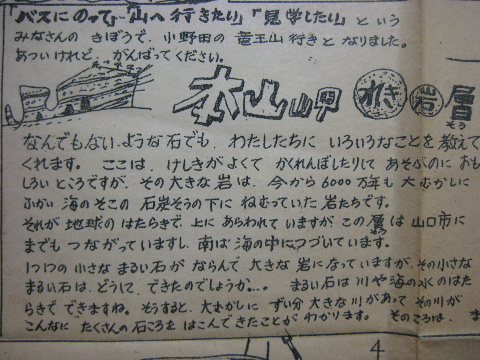 "バスにのって""山へ行きたい""見学したい"という
みなさんの きぼうで、小野田の 竜王山 行きと なりました。
あついけれど、がんばってください。
本山岬 れき岩 層
そう
なんでもない ような 石でも、わたしたちに いろいろなことを 教えて
くれます。 ここは、けしきが よくて かくれんぼしたりして あそぶのに おも
しろい ところですが、その 大きな 岩は、今から 6000万年も 大むかしに
ふかい 海の そこの 石炭そうの 下に ねむっていた 岩たちです。
それが 地球の はたらきで、上に あらわれて いますが、この 層は 山口市に
そう
までも つながっていますし、南は 海の中に つづいています。
1つ1つの 小さな まるい 石が ならんで 大きな 岩に なっていますが、その 小さな
まるい 石は、どうして、できたのでしょうか… まるい 石は 川や 海の 水の はた
らきで できますね。 そうすると、大むかしに ずい分 大きな 川が あって その 川が
こんなに たくさんの 石ころを はこんで きたことが わかります。 そのころは、ま
4